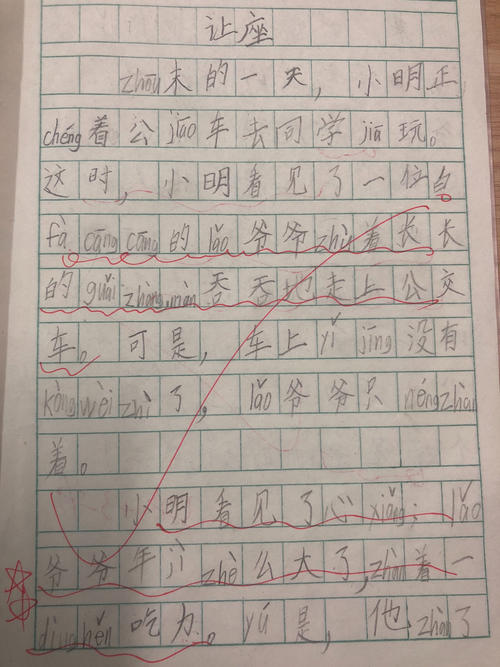 让座
zhōu末的一天，小明正
chéng着公jiāo车去同学jiā玩。
这时，小明看见了一位白
fà cāng cāng的lǎo爷爷zhǔ着长长
的guǎi zhàng，màn吞吞地走上公交
车。可是，车上yǐ jīng没有
kòng wèi zhì了，lǎo爷爷只néng zhàn
着。
小明看见了心xiǎng：lǎo
爷爷年jì zhè么大了，zhàn着一
dìng hěn吃力。yú是，他zhàn了